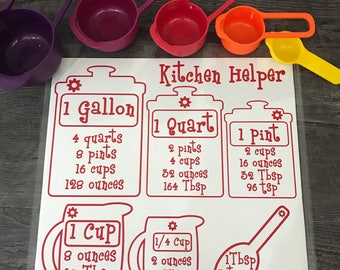 Kitchen Helper
1 Gallon
4 quarts
8 pints
16 cups
128 ounces
1 Quart
2 pints
4 cups
32 ounces
164 Tbsp
1 pint
2 cups
16 ounces
32 Tbsp
96 tsp
1 Cup
8 ounces
1/4 Cup
2 ounces
1Tbsp